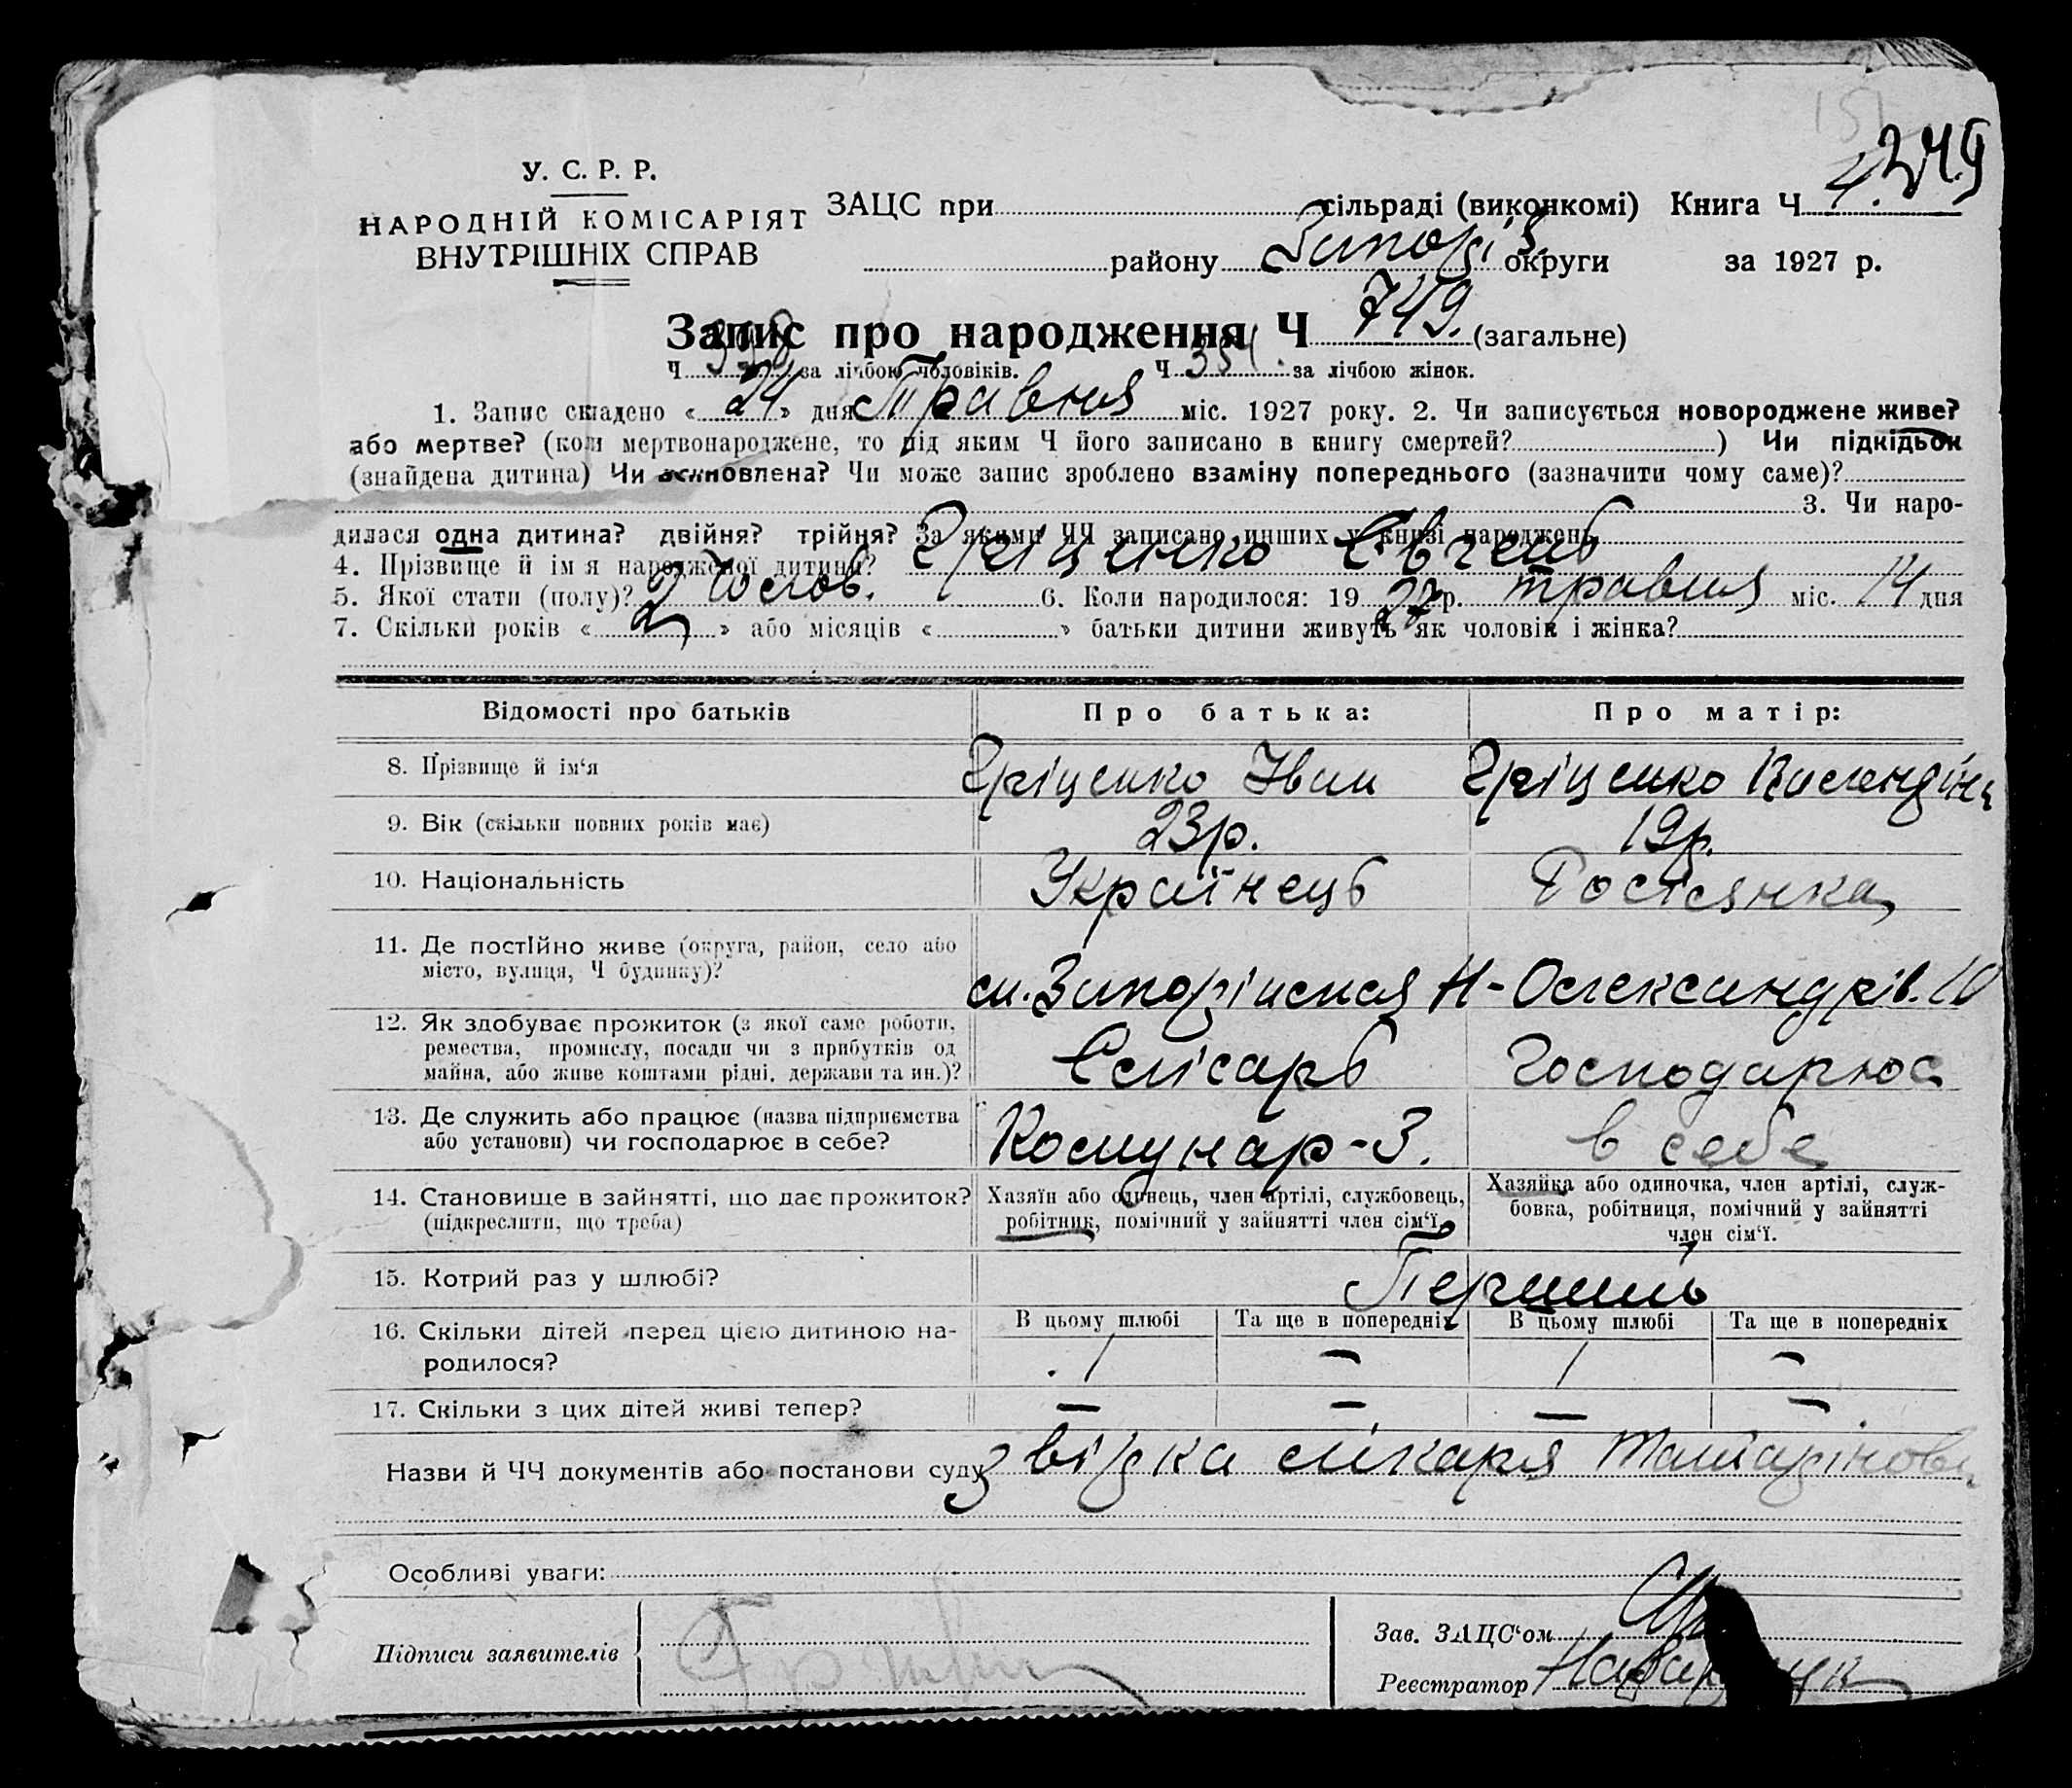 151
249
У. С. Р. Р.
НАРОДНІЙ КОМІСАРІЯТ
ВНУТРІШНІХ СПРАВ
ЗАЦС при сільраді (виконкомі) Книга Ч 4.
району Запоріз. округи за 1927 р.
Запис про народження Ч 749. (загальне)
Ч за лічбою чоловіків. Ч 354. за лічбою жінок.
1. Запис складено « 24 » дня Травня міс. 1927 року. 2. Чи записується новороджене живе?
або мертве? (коли мертвонароджене, то під яким Ч його записано в книгу смертей? ) Чи підкідьок
(знайдена дитина) Чи встановлена? Чи може запис зроблено взаміну попереднього (зазначити чому саме)?
3. Чи наро-
дилася одна дитина? двійня? трійня? За якими ЧЧ записано инших у книзі народжень
4. Прізвище й ім'я народженої дитини? Гріценко Євгень
5. Якої стати (полу)? Чолов. 6. Коли народилося: 19 27 р. травня міс. 14 дня
7. Скільки років « 2 » або місяців « » батьки дитини живуть як чоловік і жінка?
Відомості про батьків Про батька: Про матір:
8. Прізвище й ім'я Гріценко Іван Гріценко
9. Вік (скільки повних років має) 23р. 19р.
10. Національність Українець Росіянка
11. Де постійно живе (округа, район, село або
місто, вулиця, Ч будинку)? м. Запоріжжя Н-Олександрів. 10
12. Як здобуває прожиток (з якої саме роботи,
ремества, промислу, посади чи з прибутків од
майна, або живе коштами рідні, держави та ин.)? Слісарь Господарює
13. Де служить або працює (назва підприємства
або установи) чи господарює в себе? Комунар-З. в себе
14. Становище в зайнятті, що дає прожиток?
(підкреслити, що треба)
Хазяїн або одинець, член артілі, службовець,
робітник, помічний у зайнятті член сім'ї.
Хазяйка або одиночка, член артілі, служ-
бовка, робітниця, помічний у зайнятті
член сім'ї.
15. Котрий раз у шлюбі? Перший
В цьому шлюбі Та ще в попередніх В цьому шлюбі Та ще в попередніх
16. Скільки дітей перед цією дитиною на-
родилося? 1 — 1 —
17. Скільки з цих дітей живі тепер? — — — —
Назви й ЧЧ документів або постанови суду звідка лікаря
Особливі уваги:
Підписи заявителів
Зав. ЗАЦС'ом
Реєстратор